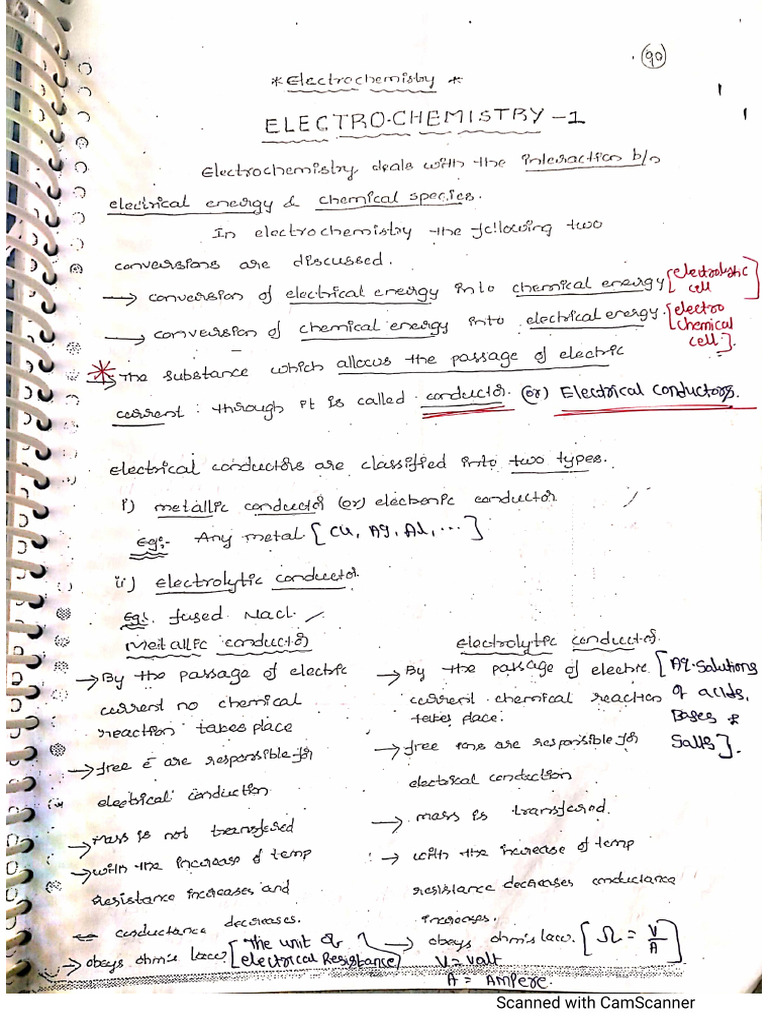 90
* Electrochemistry *
ELECTRO-CHEMISTRY -1
Electrochemistry deals with the interaction b/n
electrical energy & chemical species.
In electrochemistry the following two
conversions are discussed.
→ conversion of electrical energy into chemical energy [electrolytic cell]
→ conversion of chemical energy into electrical energy. [electro chemical cell].
* → The substance which allows the passage of electric
current through it is called conductor. (or) Electrical conductors.
electrical conductors are classified into two types.
i) metallic conductor (or) electronic conductor
Eg:- Any metal [Cu, Ag, Al, ...]
ii) electrolytic conductor
Eg:- fused Nacl.
Metallic conductor
→ By the passage of electric
current no chemical
reaction takes place
→ free e̅ are responsible for
electrical conduction
→ mass is not transfered
→ with the increase of temp
resistance increases and
conductance decreases.
→ obeys ohm's law. [The unit of electrical Resistance]
electrolytic conductor.
→ By the passage of electric
current chemical reaction
takes place.
[Aq. Solutions
of acids,
Bases &
Salts].
→ free ions are responsible for
electrical conduction
→ mass is transfered.
→ with the increase of temp
resistance decreases conductance
increases.
→ obeys ohm's law. [Ω = V/A]
V = volt
A = AMPERE.
Scanned with CamScanner